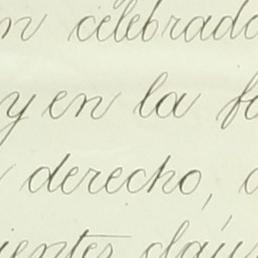 n celebrado
y en la fo
derecho,
ientes cláus